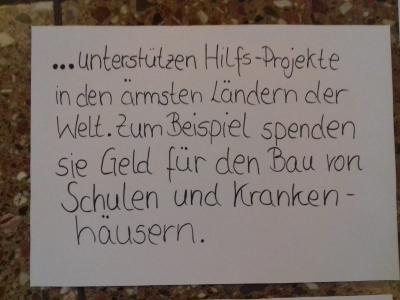 ...unterstützen Hilfs-Projekte
in den ärmsten Ländern der
Welt. Zum Beispiel spenden
sie Geld für den Bau von
Schulen und Kranken-
häusern.